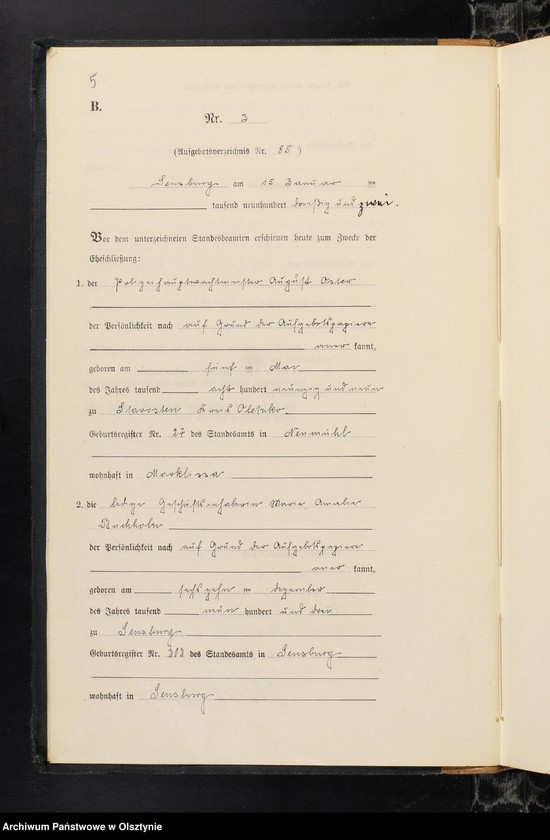 5
B.
Nr. 3
(Aufgebotsverzeichnis Nr. 85)
Sensburg, am 15 Januar
tausend neunhundert dreißig und zwei.
Vor dem unterzeichneten Standesbeamten erschienen heute zum Zwecke der
Eheschließung:
1. der Polizeihauptwachtmeister August Oster
der Persönlichkeit nach auf Grund der Aufgebotspapiere
aner kannt,
geboren am fünf ten Mai
des Jahres tausend acht hundert neunzig und neun
zu Starosten Kreis Oletzko
Geburtsregister Nr. 27 des Standesamts in Neumühl
wohnhaft in Marklissa
2. die ledige Geschäftsinhaberin Marie Amalie
Buchholz
der Persönlichkeit nach auf Grund der Aufgebotspapiere
aner kannt,
geboren am sechszehn ten Dezember
des Jahres tausend neun hundert und drei
zu Sensburg
Geburtsregister Nr. des Standesamts in Sensburg
wohnhaft in Sensburg
Archiwum Państwowe w Olsztynie